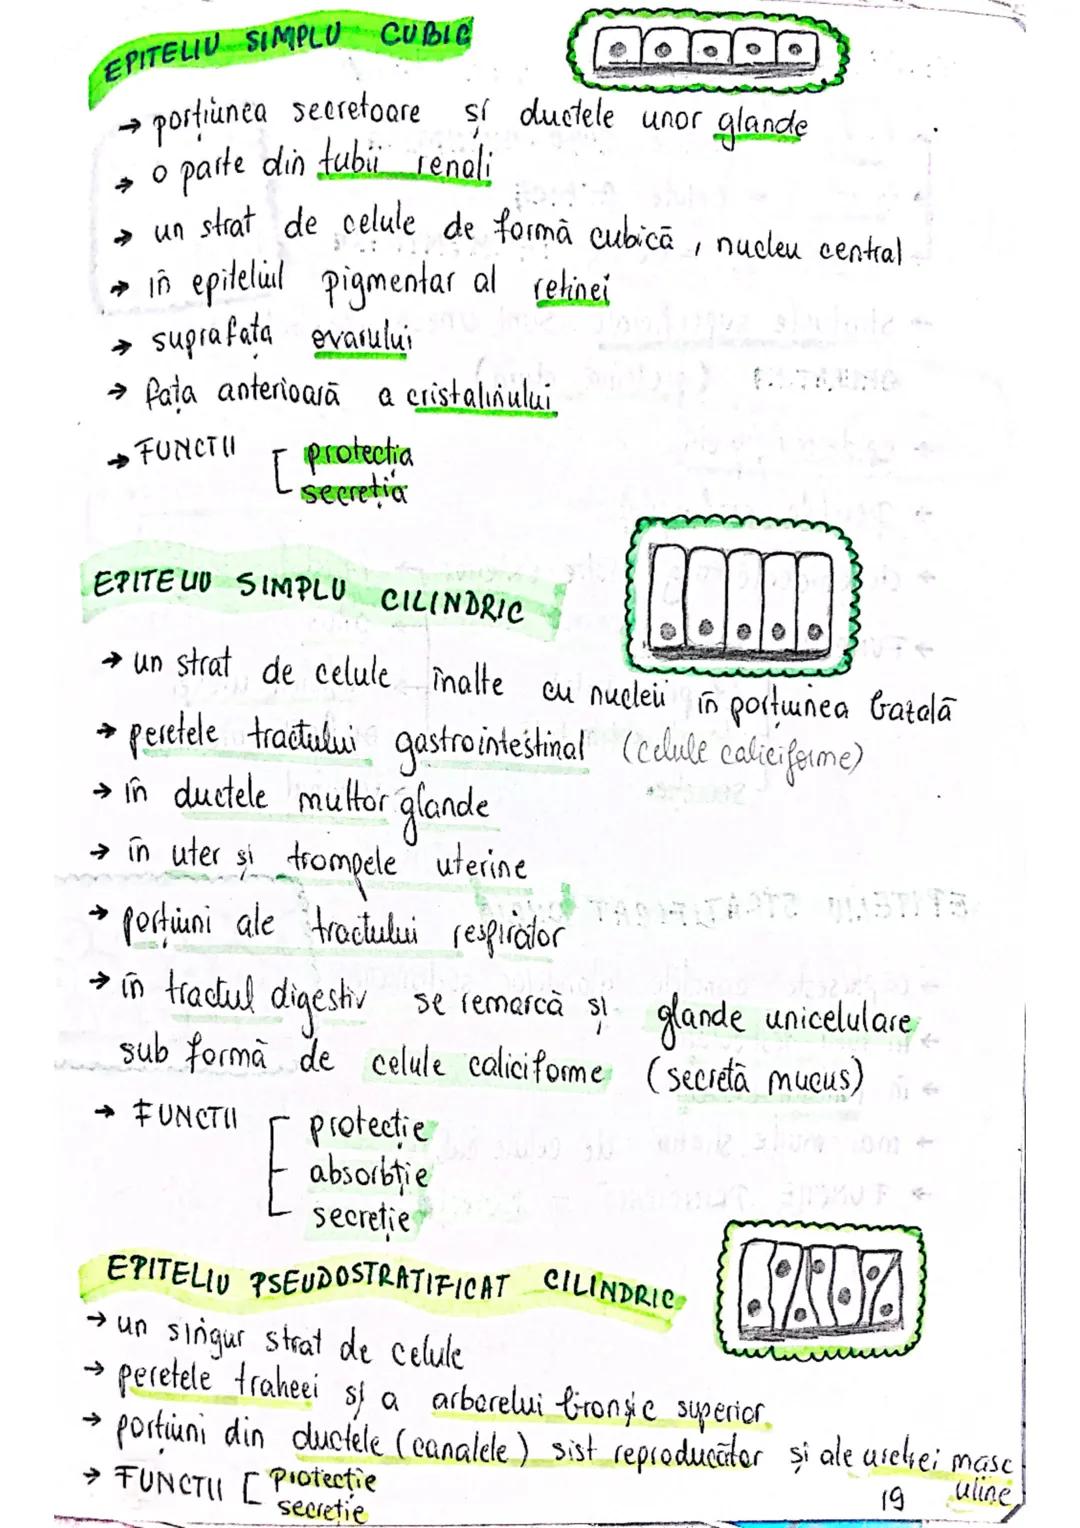 EPITELIU SIMPLU CUBIC
→ porțiunea secretoare și ductele unor glande
→ o parte din tubii renali
→ un strat de celule de formă cubică, nucleu central
→ în epiteliul pigmentar al retinei
→ suprafața ovarului
→ fața anterioară a cristalinului
→ FUNCȚII [ protecția
secreția
EPITELIU SIMPLU CILINDRIC
→ un strat de celule înalte cu nucleii în porțiunea bazală
→ peretele tractului gastrointestinal (celule caliciforme)
→ în ductele multor glande
→ în uter și trompele uterine
→ porțiuni ale tractului respirator
→ în tractul digestiv se remarcă și glande unicelulare
sub formă de celule caliciforme (secretă mucus)
→ FUNCȚII [ protecție
absorbție
secreție
EPITELIU PSEUDOSTRATIFICAT CILINDRIC
→ un singur strat de celule
→ peretele traheei și a arborelui bronșic superior
→ porțiuni din ductele (canalele) sist reproducător și ale uretrei masc
uline
→ FUNCȚII [ protecție
secreție
19